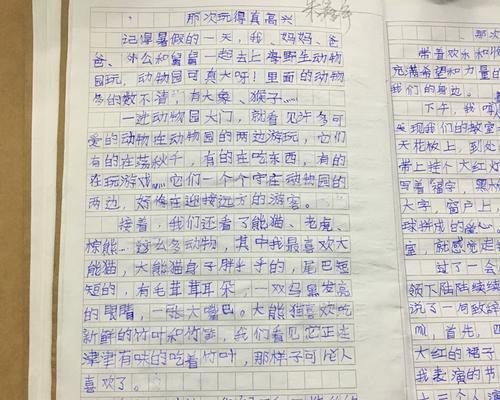 那次玩得真高兴
记得暑假的一天，我、妈妈、爸
爸、外公和舅舅一起去上海野生动物
园玩，动物园可真大呀！里面的动物
多的数不清，有大象、猴子……
一进动物园大门，就看见许多可
爱的动物在动物园的两边游玩，它们
有的在荡秋千，有的在吃东西，有的
在玩游戏……它们一个个守在动物园的
两边，好像在迎接远方的游客。
接着，我们还看了熊猫、老虎、
棕熊……这么多动物，其中我最喜欢大
熊猫，大熊猫身子胖乎乎的，尾巴短
短的，有毛茸茸耳朵，一双乌黑发亮
的眼睛，一张大嘴巴。大熊猫喜欢吃
新鲜的竹叶和竹笋，我们看见它正在
津津有味的吃着竹叶，那样子可
喜欢了。
那次
带着欢乐和
充满希望和力量
我们的身边。
下午，我
发现我们的教室
天花板上，到处
带上挂个大红灯
写着福字，黑
大字，窗户上，
球拼成的爱心。
室，就感觉走
过了一会
领下陆陆续续
说了一句致辞
，首先，四
大红的裙子
我表演的节
十三个人